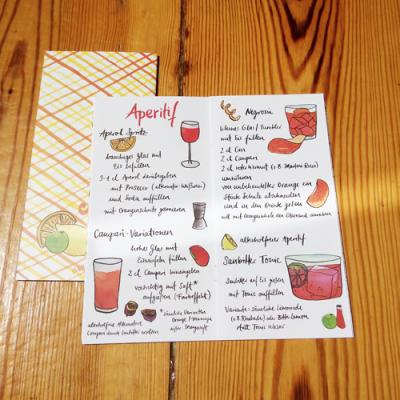 Aperitif
Aperol Spritz
bauchiges Glas mit
Eis befüllen
3-4 cl Aperol hineingeben
mit Prosecco (alternativ Weißwein)
und Soda auffüllen
mit Orangenscheibe garnieren
Campari-Variationen
hohes Glas mit
Eiswürfeln füllen
2 cl Campari hineingeben
vorsichtig mit Saft*
aufgießen (Farbeffekt)
*
alkoholfreie Alternative:
Campari durch ersetzen
Negroni
kleines Glas / Tumbler
mit Eis füllen
2 cl Gin
2 cl Campari
2 cl roter Wermut (z.B. Martini Rosso)
umrühren
von unbehandelter Orange ein
Stück Schale abschneiden
und in den Drink geben
alkoholfreier Aperitif
Sanbitter Tonic
Sanbitter auf Eis gießen
mit Tonic auffüllen
Variante: säuerliche Limonade
(z.B. Rhabarber) oder Bitter Lemon
statt Tonic Water